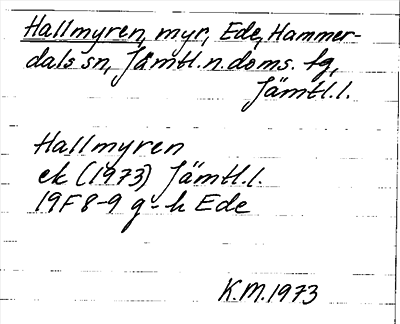 Hallmyren, myr, Ede, Hammer-
dals sn, Jämtl.n.doms. fg,
Jämtl.l.
Hallmyren
ek (1973) Jämtl.l.
19F 8-9 g-h Ede
K.M.1973